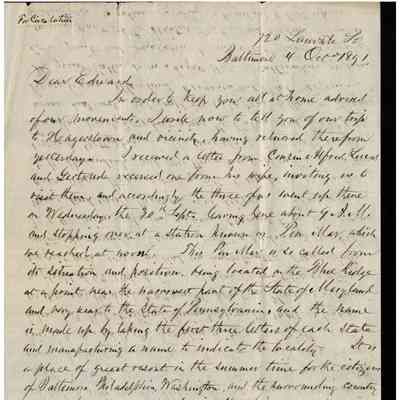 For Circulation
720 St
Baltimore 4 Oct 1891
Dear Edward
In order to keep you all at home advised
of our movements, I write now to tell you of our trip
to Hagerstown and vicinity, having returned therefrom
yesterday. I received a letter from Cousin Alfred
and Gertrude received one from his wife, inviting us to
visit them, and accordingly the three of us went up there
on Wednesday, the 30th Sept. leaving here about 9 A.M.
and stopping over at a station known as Pen Mar, which
we reached at noon. This Pen Mar is so called from
its situation and position, being located on the Blue Ridge
at a point near the narrowest part of the State of Maryland
and very near to the State of Pennsylvania, and the name
is made up by taking the first three letters of each State
and manufacturing a name to indicate the locality. It is
a place of great resort in the summer time for the citizens
of Baltimore, Philadelphia, Washington, and the surrounding country